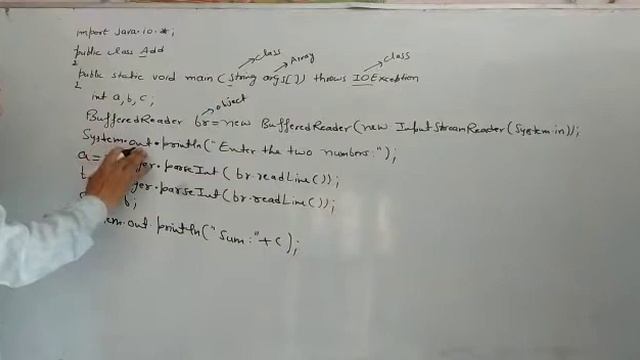 import java.io.*;
public class Add
{
class Array class
public static void main (String args[]) throws IOException
{
int a, b, c;
object
BufferedReader br=new BufferedReader(new InputStreamReader(System.in));
System.out.println("Enter the two numbers:");
a= ger.parseInt(br.readLine());
ger.parseInt(br.readLine());
b;
em.out.println("Sum:"+c);